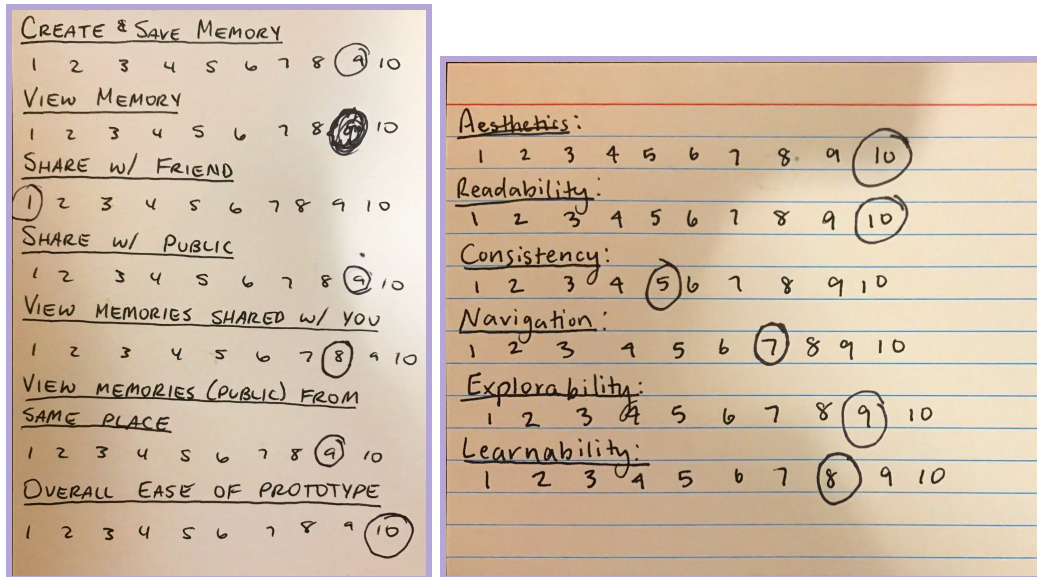 CREATE & SAVE MEMORY
1 2 3 4 5 6 7 8 9 10
VIEW MEMORY
1 2 3 4 5 6 7 8 9 10
SHARE W/ FRIEND
1 2 3 4 5 6 7 8 9 10
SHARE W/ PUBLIC
1 2 3 4 5 6 7 8 9 10
VIEW MEMORIES SHARED W/ YOU
1 2 3 4 5 6 7 8 9 10
VIEW MEMORIES (PUBLIC) FROM
SAME PLACE
1 2 3 4 5 6 7 8 9 10
OVERALL EASE OF PROTOTYPE
1 2 3 4 5 6 7 8 9 10
Aesthetics:
1 2 3 4 5 6 7 8 9 10
Readability:
1 2 3 4 5 6 7 8 9 10
Consistency:
1 2 3 4 5 6 7 8 9 10
Navigation:
1 2 3 4 5 6 7 8 9 10
Explorability:
1 2 3 4 5 6 7 8 9 10
Learnability:
1 2 3 4 5 6 7 8 9 10